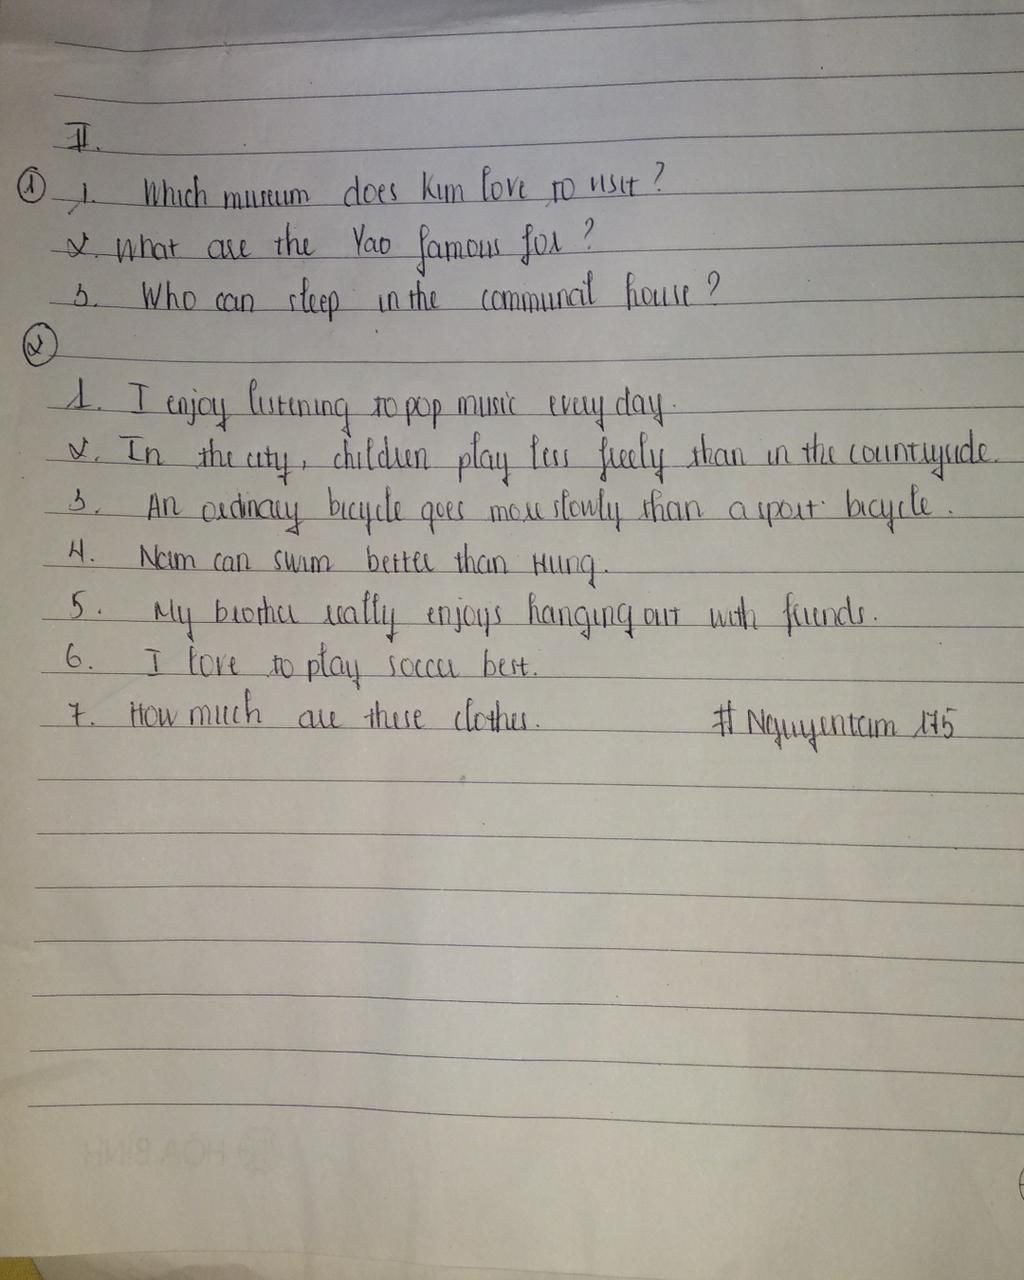 II.
① 1. Which museum does Kim love to visit?
2. What are the Yao famous for?
3. Who can sleep in the communal house?
②
1. I enjoy listening to pop music every day.
2. In the city, children play less freely than in the countryside.
3. An ordinary bicycle goes more slowly than a sport bicycle.
4. Nam can swim better than Hung.
5. My brother really enjoys hanging out with friends.
6. I love to play soccer best.
7. How much are these clothes. # Nguyentam 175
HÒA BÌNH